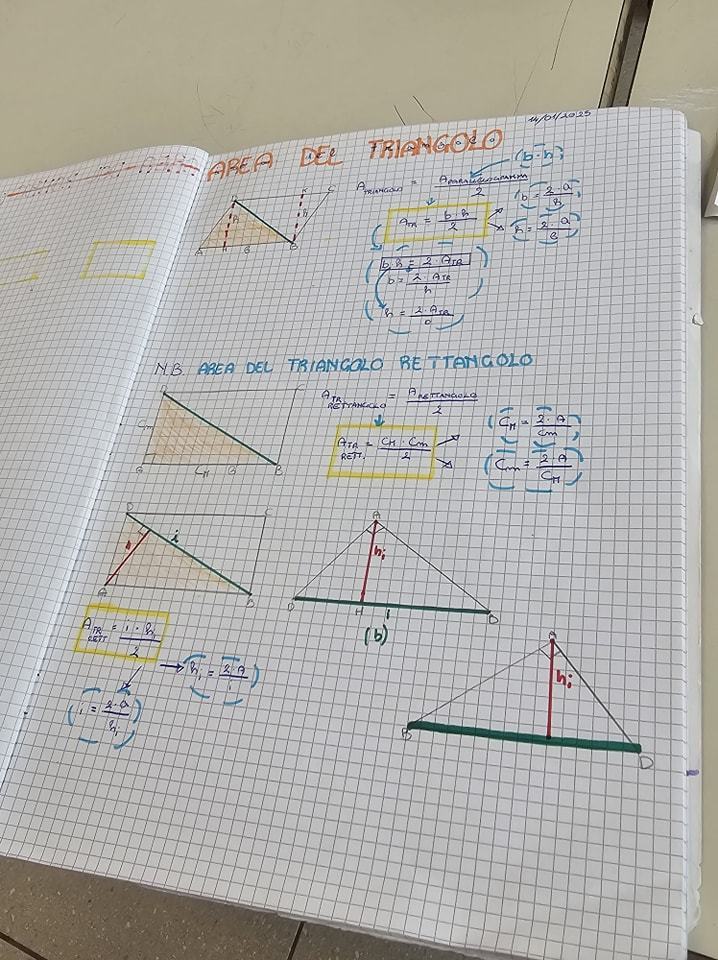 14/01/2025
AREA DEL TRIANGOLO
(b · h)
A TRIANGOLO = A PARALLELOGRAMMA / 2
A TR = b · h / 2
b = 2 · A / h
h = 2 · A / B
b · h = 2 · A TR
b = 2 · A TR / h
h = 2 · A TR
A H B B
K C
h h
N.B. AREA DEL TRIANGOLO RETTANGOLO
A TR RETTANGOLO = A RETTANGOLO / 2
A TR RETT. = CM · Cm / 2
CM = 2 · A / Cm
Cm = 2 · A / CM
Cm
CM B
D i C
A B
A
hi
D H i B
(b)
A TR RETT = i · hi / 2
hi = 2 · A / i
i = 2 · A / hi
A
hi
B D